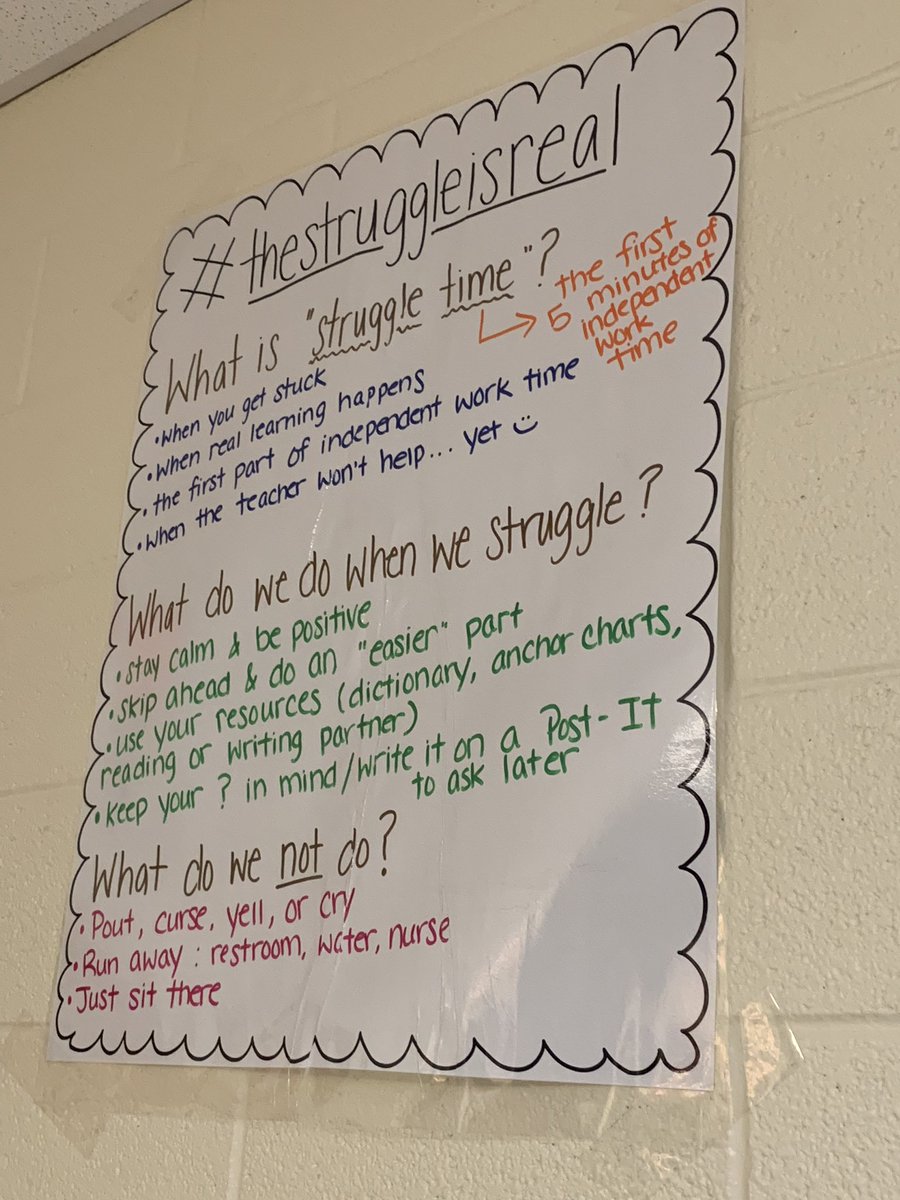 #thestruggleisreal
What is "struggle time"?
the first
5 minutes of
independent
work
time
•When you get stuck
•When real learning happens
•the first part of independent work time
•When the teacher won't help... yet
What do we do when we struggle?
•stay calm & be positive
•skip ahead & do an "easier" part
•use your resources (dictionary, anchor charts,
reading or writing partner)
•keep your ? in mind/write it on a Post-It
to ask later
What do we not do?
•Pout, curse, yell, or cry
•Run away: restroom, water, nurse
•Just sit there